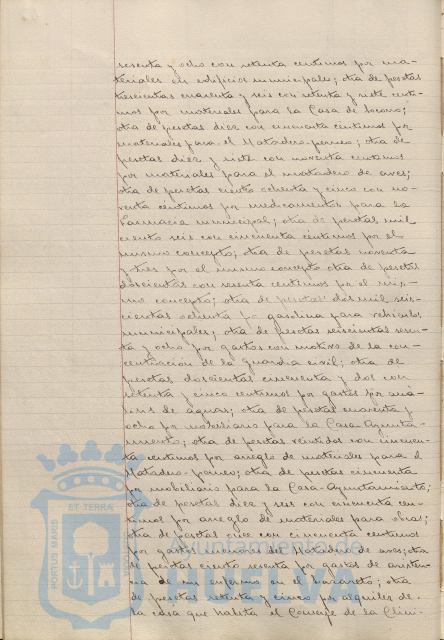 sesenta y ocho con setenta centimos por ma-
teriales en edificios municipales; otra de pesetas
trescientas cuarenta y seis con setenta y siete centi-
mos por materiales para la Casa de Socorro;
otra de pesetas diez con cincuenta centimos por
materiales para el Matadero-porcuno; otra de
pesetas diez y siete con noventa centimos
por materiales para el matadero de aves;
otra de pesetas ciento ochenta y cinco con no-
venta centimos por medicamentos para la
Farmacia municipal; otra de pesetas mil
ciento seis con cincuenta centimos por el
mismo concepto; otra de pesetas noventa
y tres por el mismo concepto otra de pesetas
doscientas con sesenta centimos por el mis-
mo concepto; otra de pesetas dos mil seis-
cientas ochenta por gasolina para vehiculos
municipales; otra de pesetas seiscientas seten-
ta y ocho por gastos con motivo de la con-
centración de la guardia civil; otra de
pesetas doscientas cincuenta y dos con
setenta y cinco centimos por gastos por aná-
lisis de aguas; otra de pesetas cuarenta y
ocho por mobiliario para la Casa-Ayunta-
miento; otra de pesetas veintidos con cincuen-
ta centimos por arreglo de materiales para el
Matadero-; otra de pesetas cincuenta
por mobiliario para la Casa-Ayuntamiento;
otra de pesetas diez y seis con cincuenta cen-
timos por arreglo de materiales para obras;
otra de pesetas once con cincuenta centimos
por gastos menores del Matadero de aves; otra
de pesetas ciento sesenta por gastos de asisten-
cia de un enfermo en el Lazareto; otra
de pesetas setenta y cinco por alquiler de
la casa que habita el Conserje de la Clini-
PORTUS MARIS ET TERRÆ
Ayuntamiento de
HUELVA